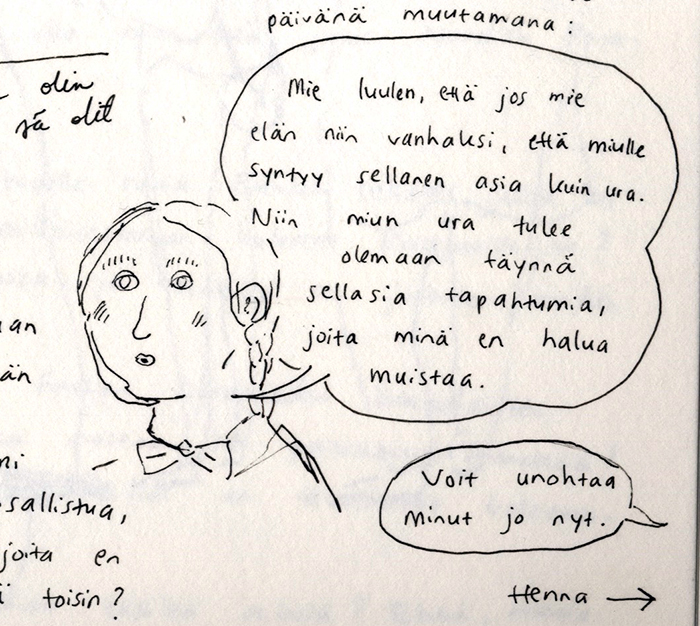 päivänä muutamana:
olin
sä olit
Mie luulen, että jos mie
elän niin vanhaksi, että miulle
syntyy sellanen asia kuin ura.
Niin miun ura tulee
olemaan täynnä
sellasia tapahtumia,
joita minä en halua
muistaa.
Voit unohtaa
minut jo nyt.
sallistua,
joita en
toisin?
Henna →